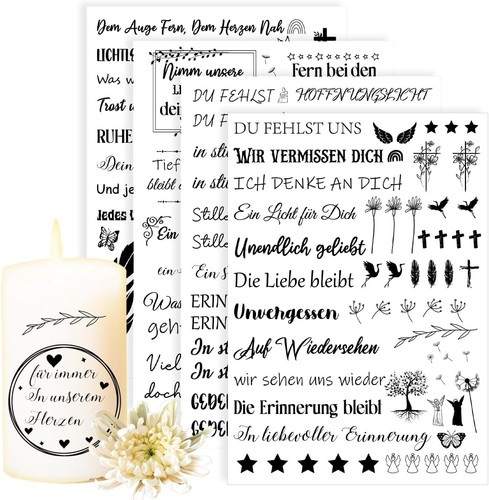 Dem Auge Fern, Dem Herzen Nah
Was
Trost
RUHE
Dein
Und
Jedes
Nimm unsere
Fern bei den
Tief
bleibt
Ein
ein
Was
Viel
doch
DU FEHLST HOFFNUNGSLICHT
DU
in
in
Stille
Stille
Ein
In
In
DU FEHLST UNS
WIR VERMISSEN DICH
ICH DENKE AN DICH
Ein Licht für Dich
Unendlich geliebt
Die Liebe bleibt
Unvergessen
Auf Wiedersehen
wir sehen uns wieder
Die Erinnerung bleibt
In liebevoller Erinnerung
für immer
In unserem
Herzen